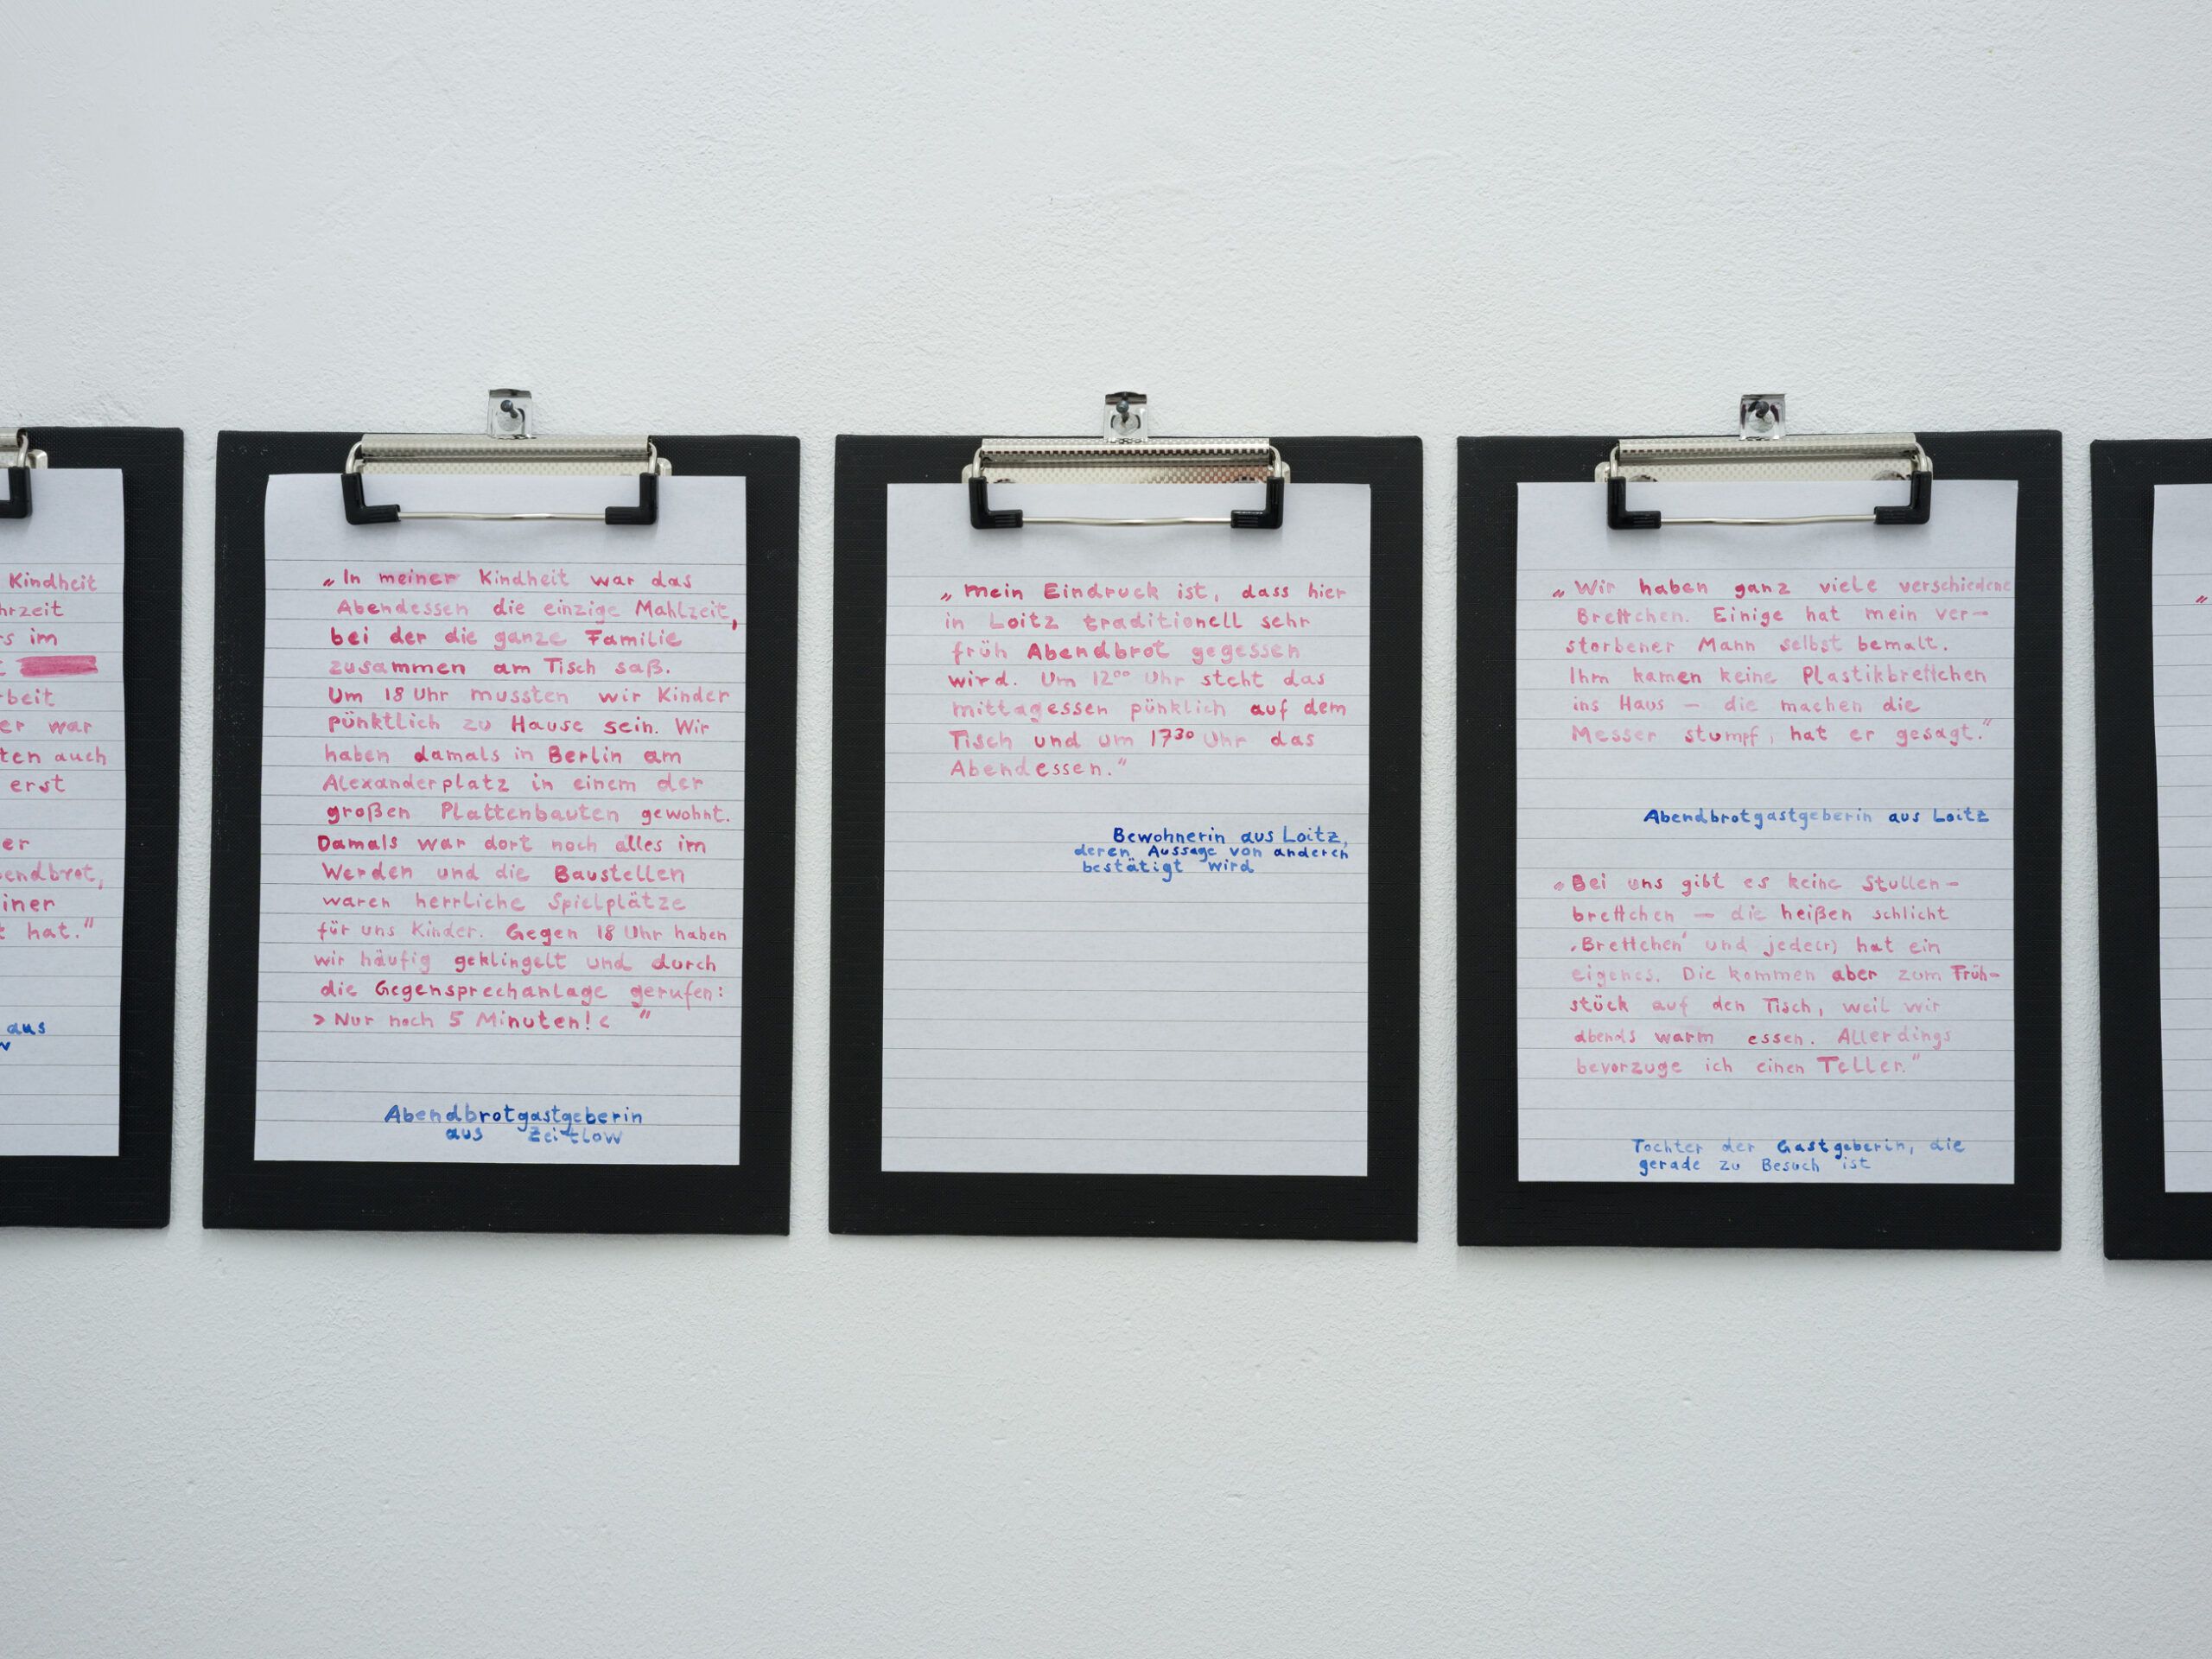 Kindheit
hrzeit
s im
rbeit
er war
ten auch
erst
er
endbrot,
iner
t hat."
aus
w
„In meiner Kindheit war das
Abendessen die einzige Mahlzeit,
bei der die ganze Familie
zusammen am Tisch saß.
Um 18 Uhr mussten wir Kinder
pünktlich zu Hause sein. Wir
haben damals in Berlin am
Alexanderplatz in einem der
großen Plattenbauten gewohnt.
Damals war dort noch alles im
Werden und die Baustellen
waren herrliche Spielplätze
für uns Kinder. Gegen 18 Uhr haben
wir häufig geklingelt und durch
die Gegensprechanlage gerufen:
>Nur noch 5 Minuten!< "
Abendbrotgastgeberin
aus Zeitlow
„Mein Eindruck ist, dass hier
in Loitz traditionell sehr
früh Abendbrot gegessen
wird. Um 12⁰⁰ Uhr steht das
Mittagessen pünklich auf dem
Tisch und um 17³⁰ Uhr das
Abendessen."
Bewohnerin aus Loitz,
deren Aussage von anderen
bestätigt wird
„Wir haben ganz viele verschiedene
Brettchen. Einige hat mein ver-
storbener Mann selbst bemalt.
Ihm kamen keine Plastikbrettchen
ins Haus – die machen die
Messer stumpf, hat er gesagt."
Abendbrotgastgeberin aus Loitz
„Bei uns gibt es keine Stullen-
brettchen – die heißen schlicht
‚Brettchen' und jede(r) hat ein
eigenes. Die kommen aber zum Früh-
stück auf den Tisch, weil wir
abends warm essen. Allerdings
bevorzuge ich einen Teller."
Tochter der Gastgeberin, die
gerade zu Besuch ist
„